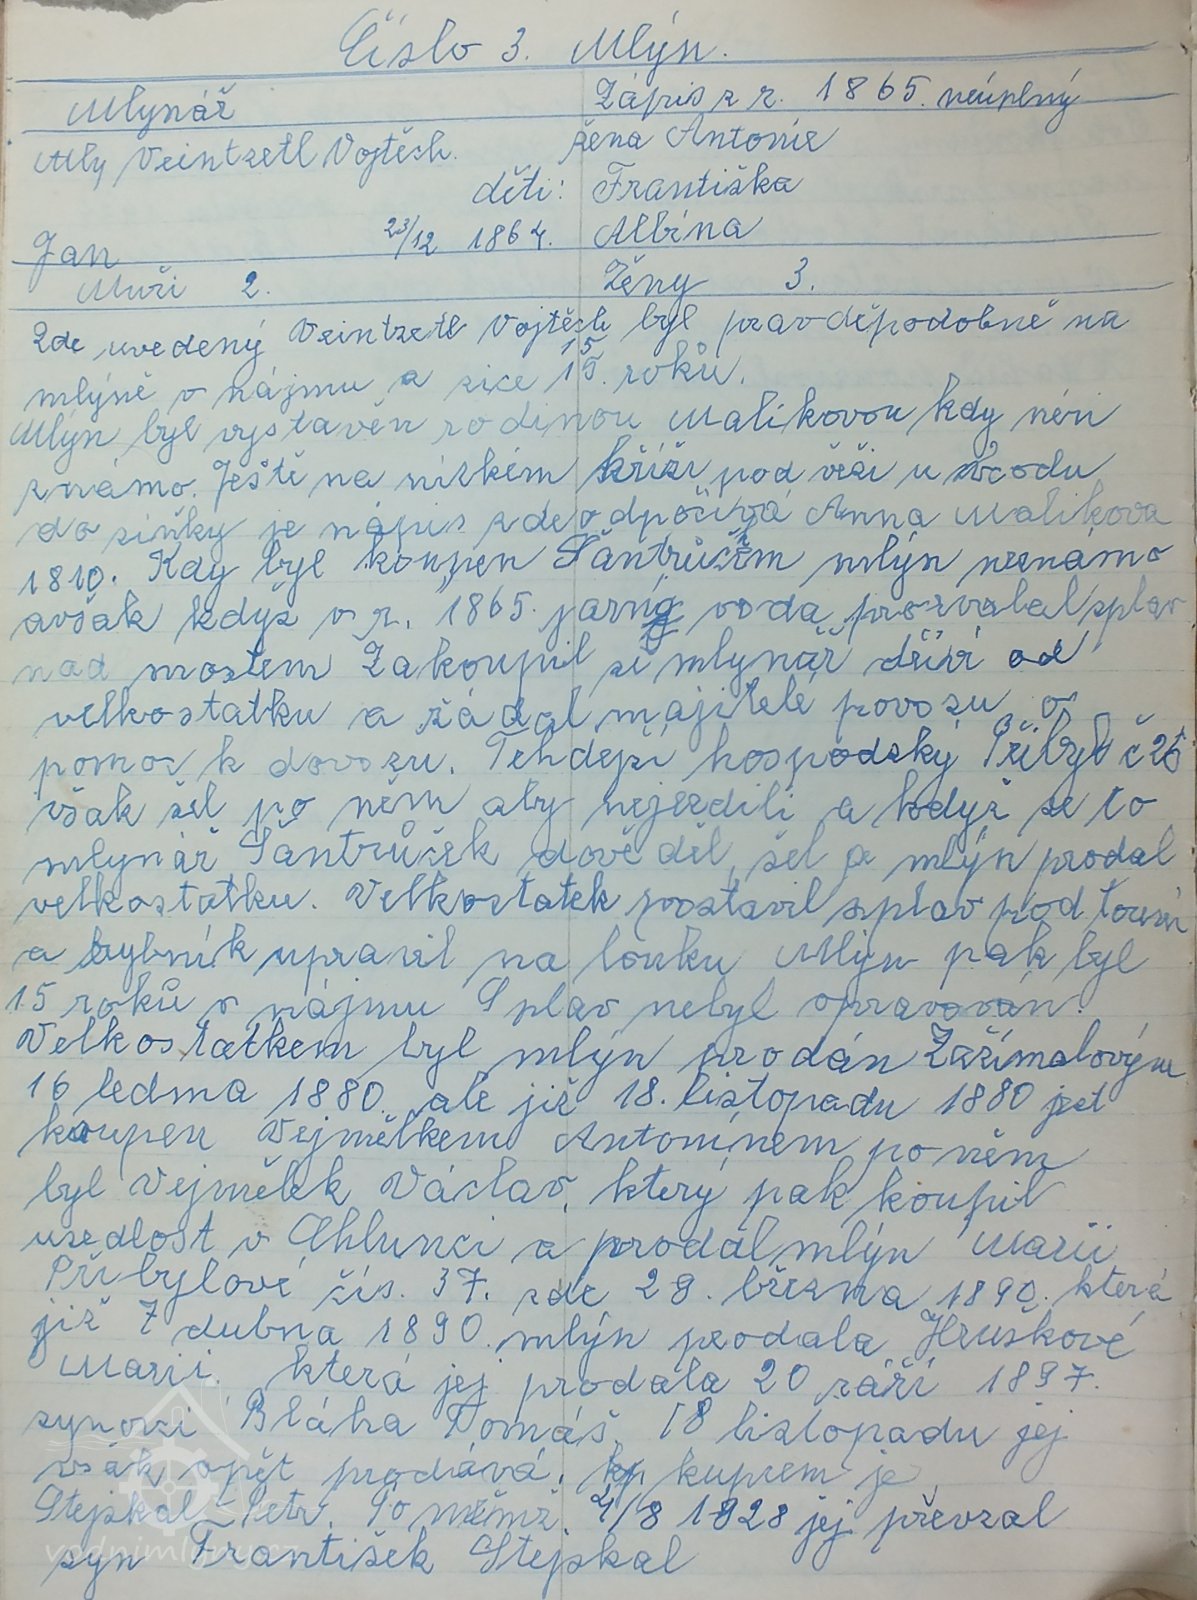 Číslo 3. Mlýn.
Mlynář Zápis z r. 1865. neúplný
Mly Veintzetl Vojtěch. žena Antonie
děti: Františka
Jan 23/12 1864. Albína
Muži 2. Ženy 3.
Zde uvedený Veintzetl Vojtěch byl pravděpodobně na
mlýně v nájmu a sice 15 roků.
Mlýn byl vystavěn rodinou Malikovou kdy není
známo. Ještě na nízkém kříži pod věži u vchodu
do síňky je nápis zde odpočívá Anna Malikova
1810. Kdy byl koupen Šantrůčkem mlýn neznámo
avšak když v r. 1865. jarní voda prorvala splav
nad mostem Zakoupil si mlynář dříví od
velkostatku a žádal majitele povozu o
pomoc k dovozu. Tehdejší hospodský Přibyl č 26
však šel po něm aby nejezdili a když se to
mlynář Šantrůček dověděl, šel a mlýn prodal
velkostatku. Velkostatek postavil splav pod
a rybník upravil na louku Mlýn pak byl
15 roků v nájmu Splav nebyl opravován.
Velkostatkem byl mlýn prodán Zařímalovým
16 ledma 1880. ale již 18. listopadu 1880 jest
koupen Vejmělkem Antonínem po něm
byl Vejmělek Václav, který pak koupil
usedlost v Chlunci a prodal mlýn Marii
Přibylové čís. 37. zde 29. března 1890. která
již 7 dubna 1890. mlýn prodala Hruškové
Marii. která jej prodala 20 září 1897.
synovi Bláha Tomáš. 18 listopadu jej
však opět prodává. kupcem je
Stejskal Petr. Po němž. 4/8 1928 jej převzal
syn František Stejskal
vodnimlyny.cz